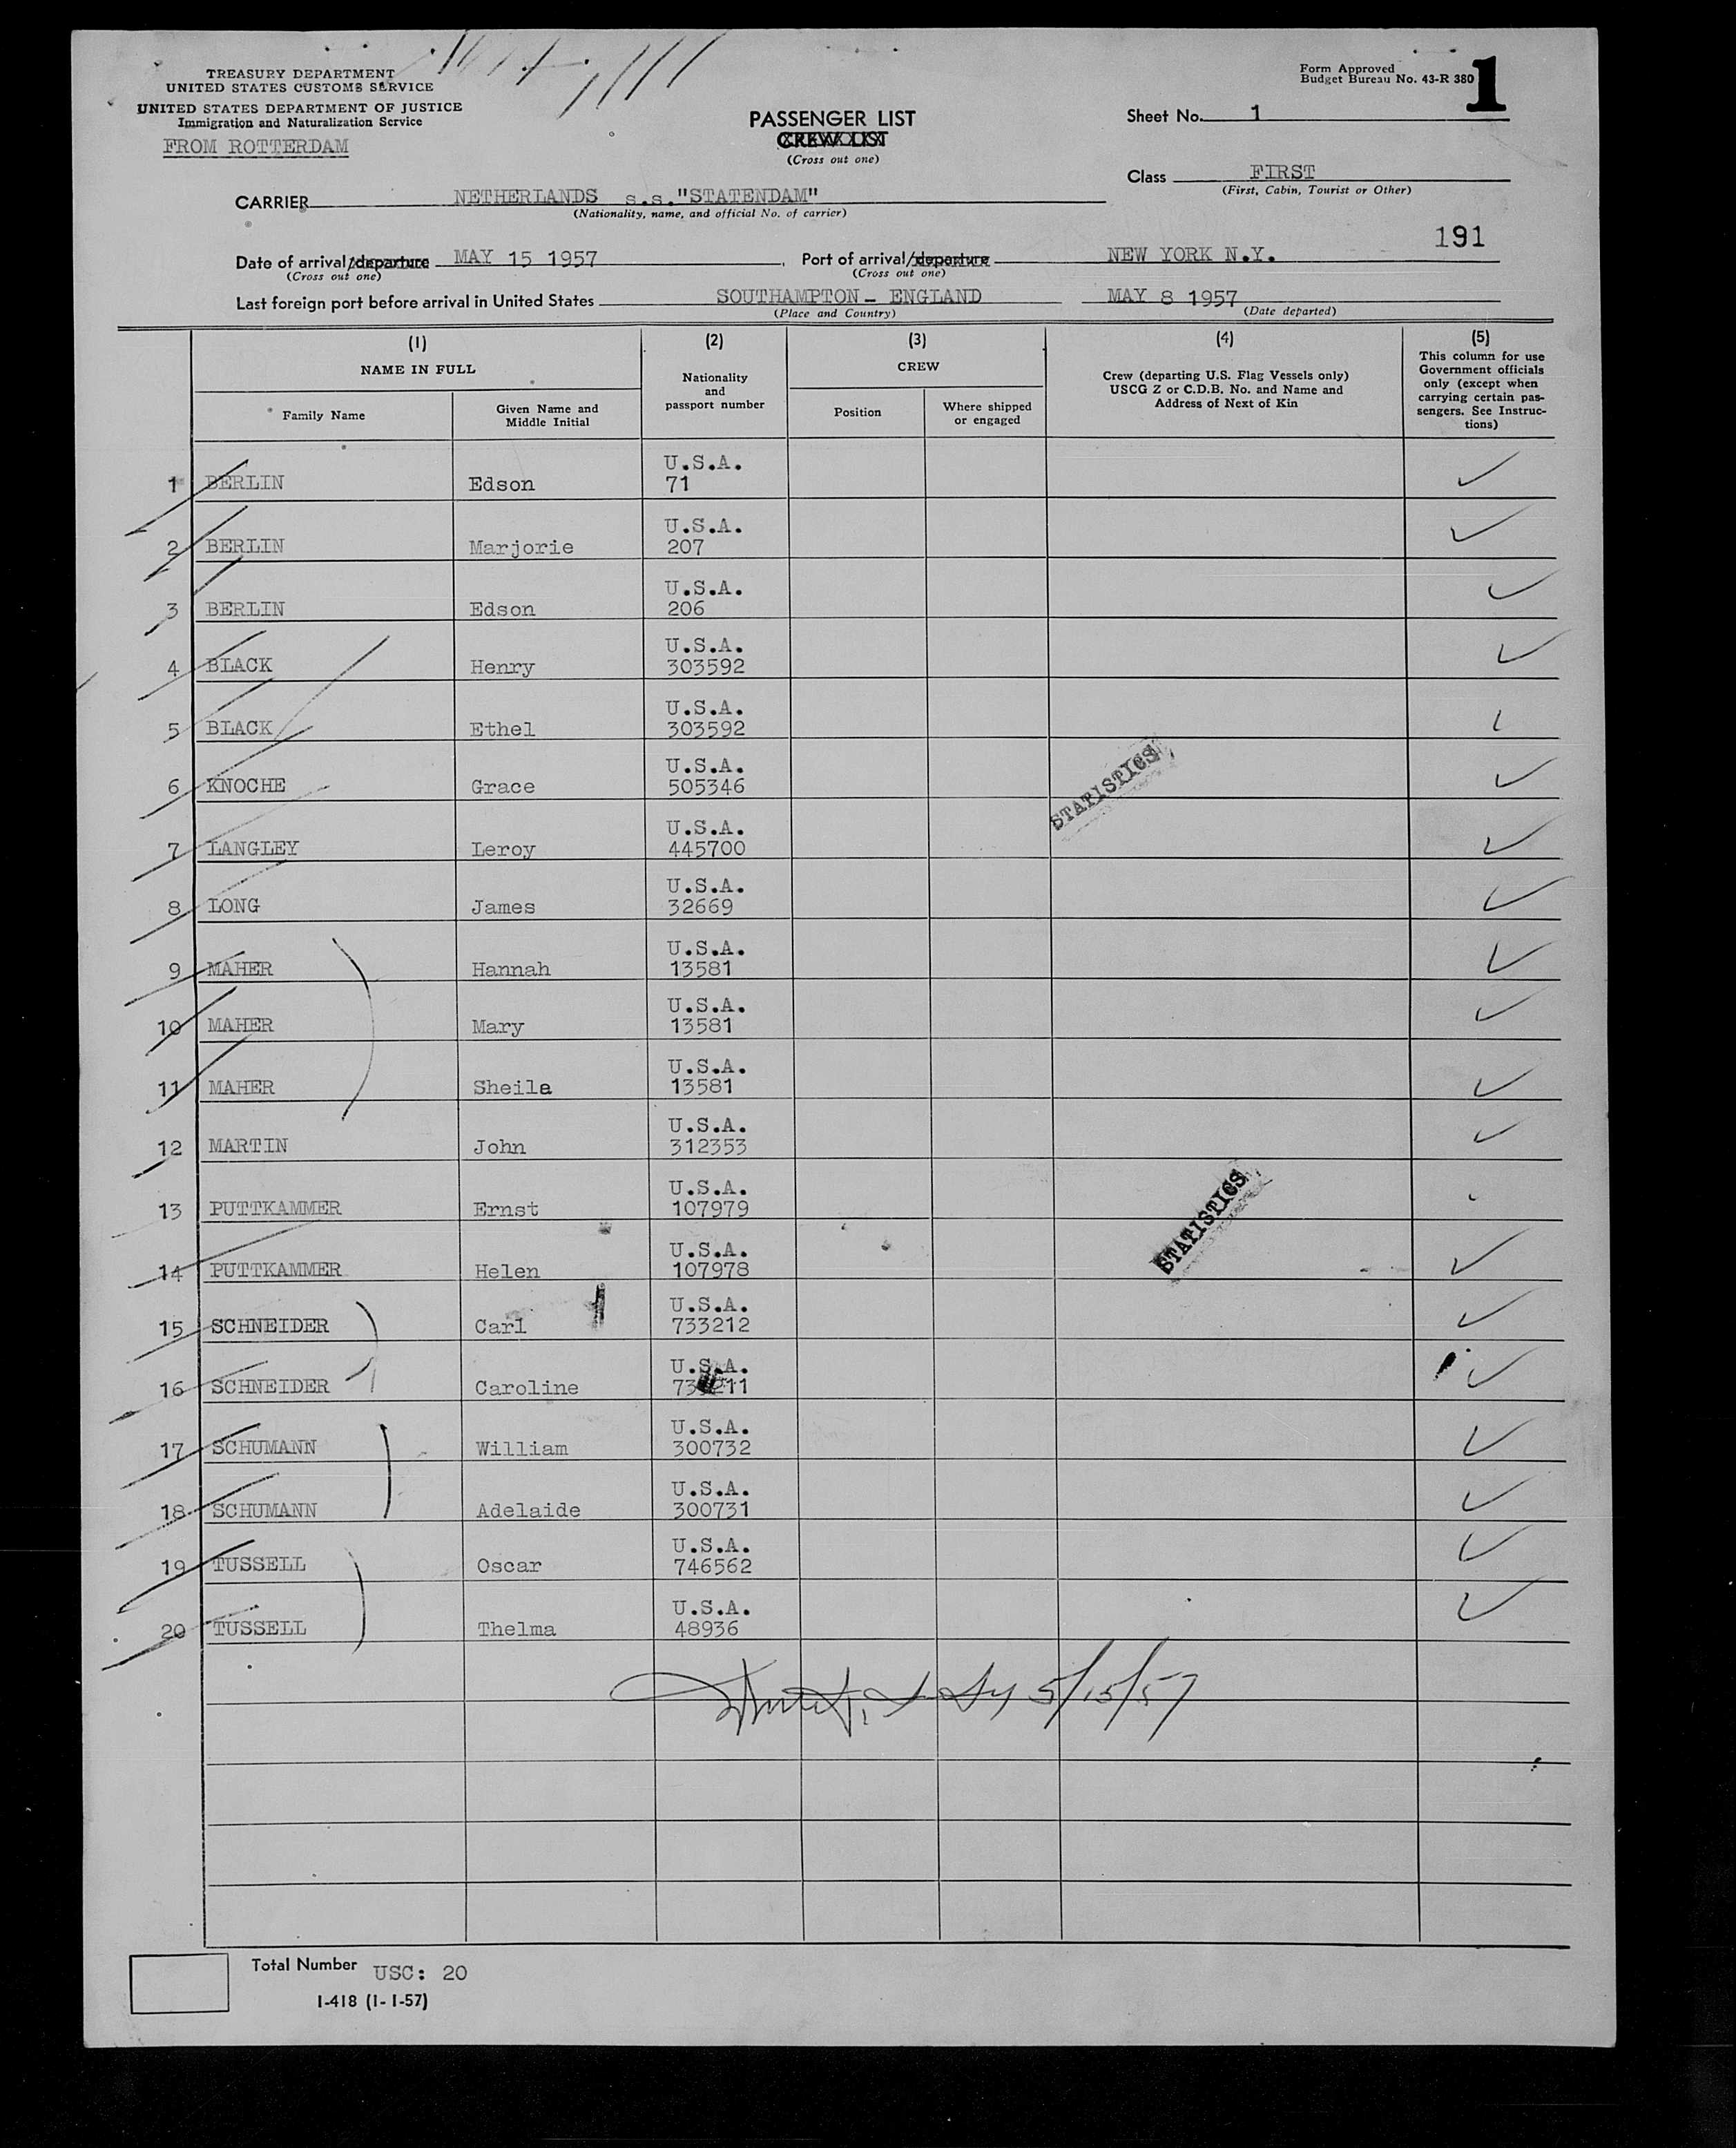 TREASURY DEPARTMENT
UNITED STATES CUSTOMS SERVICE
UNITED STATES DEPARTMENT OF JUSTICE
Immigration and Naturalization Service
FROM ROTTERDAM
Form Approved
Budget Bureau No. 43-R 380
1
PASSENGER LIST
CREW LIST
(Cross out one)
Sheet No. 1
Class FIRST
(First, Cabin, Tourist or Other)
CARRIER NETHERLANDS s.s."STATENDAM"
(Nationality, name, and official No. of carrier)
191
Date of arrival/departure MAY 15 1957, Port of arrival/departure NEW YORK N.Y.
(Cross out one) (Cross out one)
Last foreign port before arrival in United States SOUTHAMPTON - ENGLAND MAY 8 1957
(Place and Country) (Date departed)
(1) (2) (3) (4) (5)
NAME IN FULL
Family Name
Given Name and
Middle Initial
Nationality
and
passport number
CREW
Position
Where shipped
or engaged
Crew (departing U.S. Flag Vessels only)
USCG Z or C.D.B. No. and Name and
Address of Next of Kin
This column for use
Government officials
only (except when
carrying certain pas-
sengers. See Instruc-
tions)
U.S.A.
1 BERLIN Edson 71
U.S.A.
2 BERLIN Marjorie 207
U.S.A.
3 BERLIN Edson 206
U.S.A.
4 BLACK Henry 303592
U.S.A.
5 BLACK Ethel 303592
U.S.A.
6 KNOCHE Grace 505346
STATISTICS
U.S.A.
7 LANGLEY Leroy 445700
U.S.A.
8 LONG James 32669
U.S.A.
9 MAHER Hannah 13581
U.S.A.
10 MAHER Mary 13581
U.S.A.
11 MAHER Sheila 13581
U.S.A.
12 MARTIN John 312353
U.S.A.
13 PUTTKAMMER Ernst 107979
STATISTICS
U.S.A.
14 PUTTKAMMER Helen 107978
U.S.A.
15 SCHNEIDER Carl 733212
U.S.A.
16 SCHNEIDER Caroline
U.S.A.
17 SCHUMANN William 300732
U.S.A.
18 SCHUMANN Adelaide 300731
U.S.A.
19 TUSSELL Oscar 746562
U.S.A.
20 TUSSELL Thelma 48936
5/15/57
Total Number USC: 20
I-418 (1-1-57)